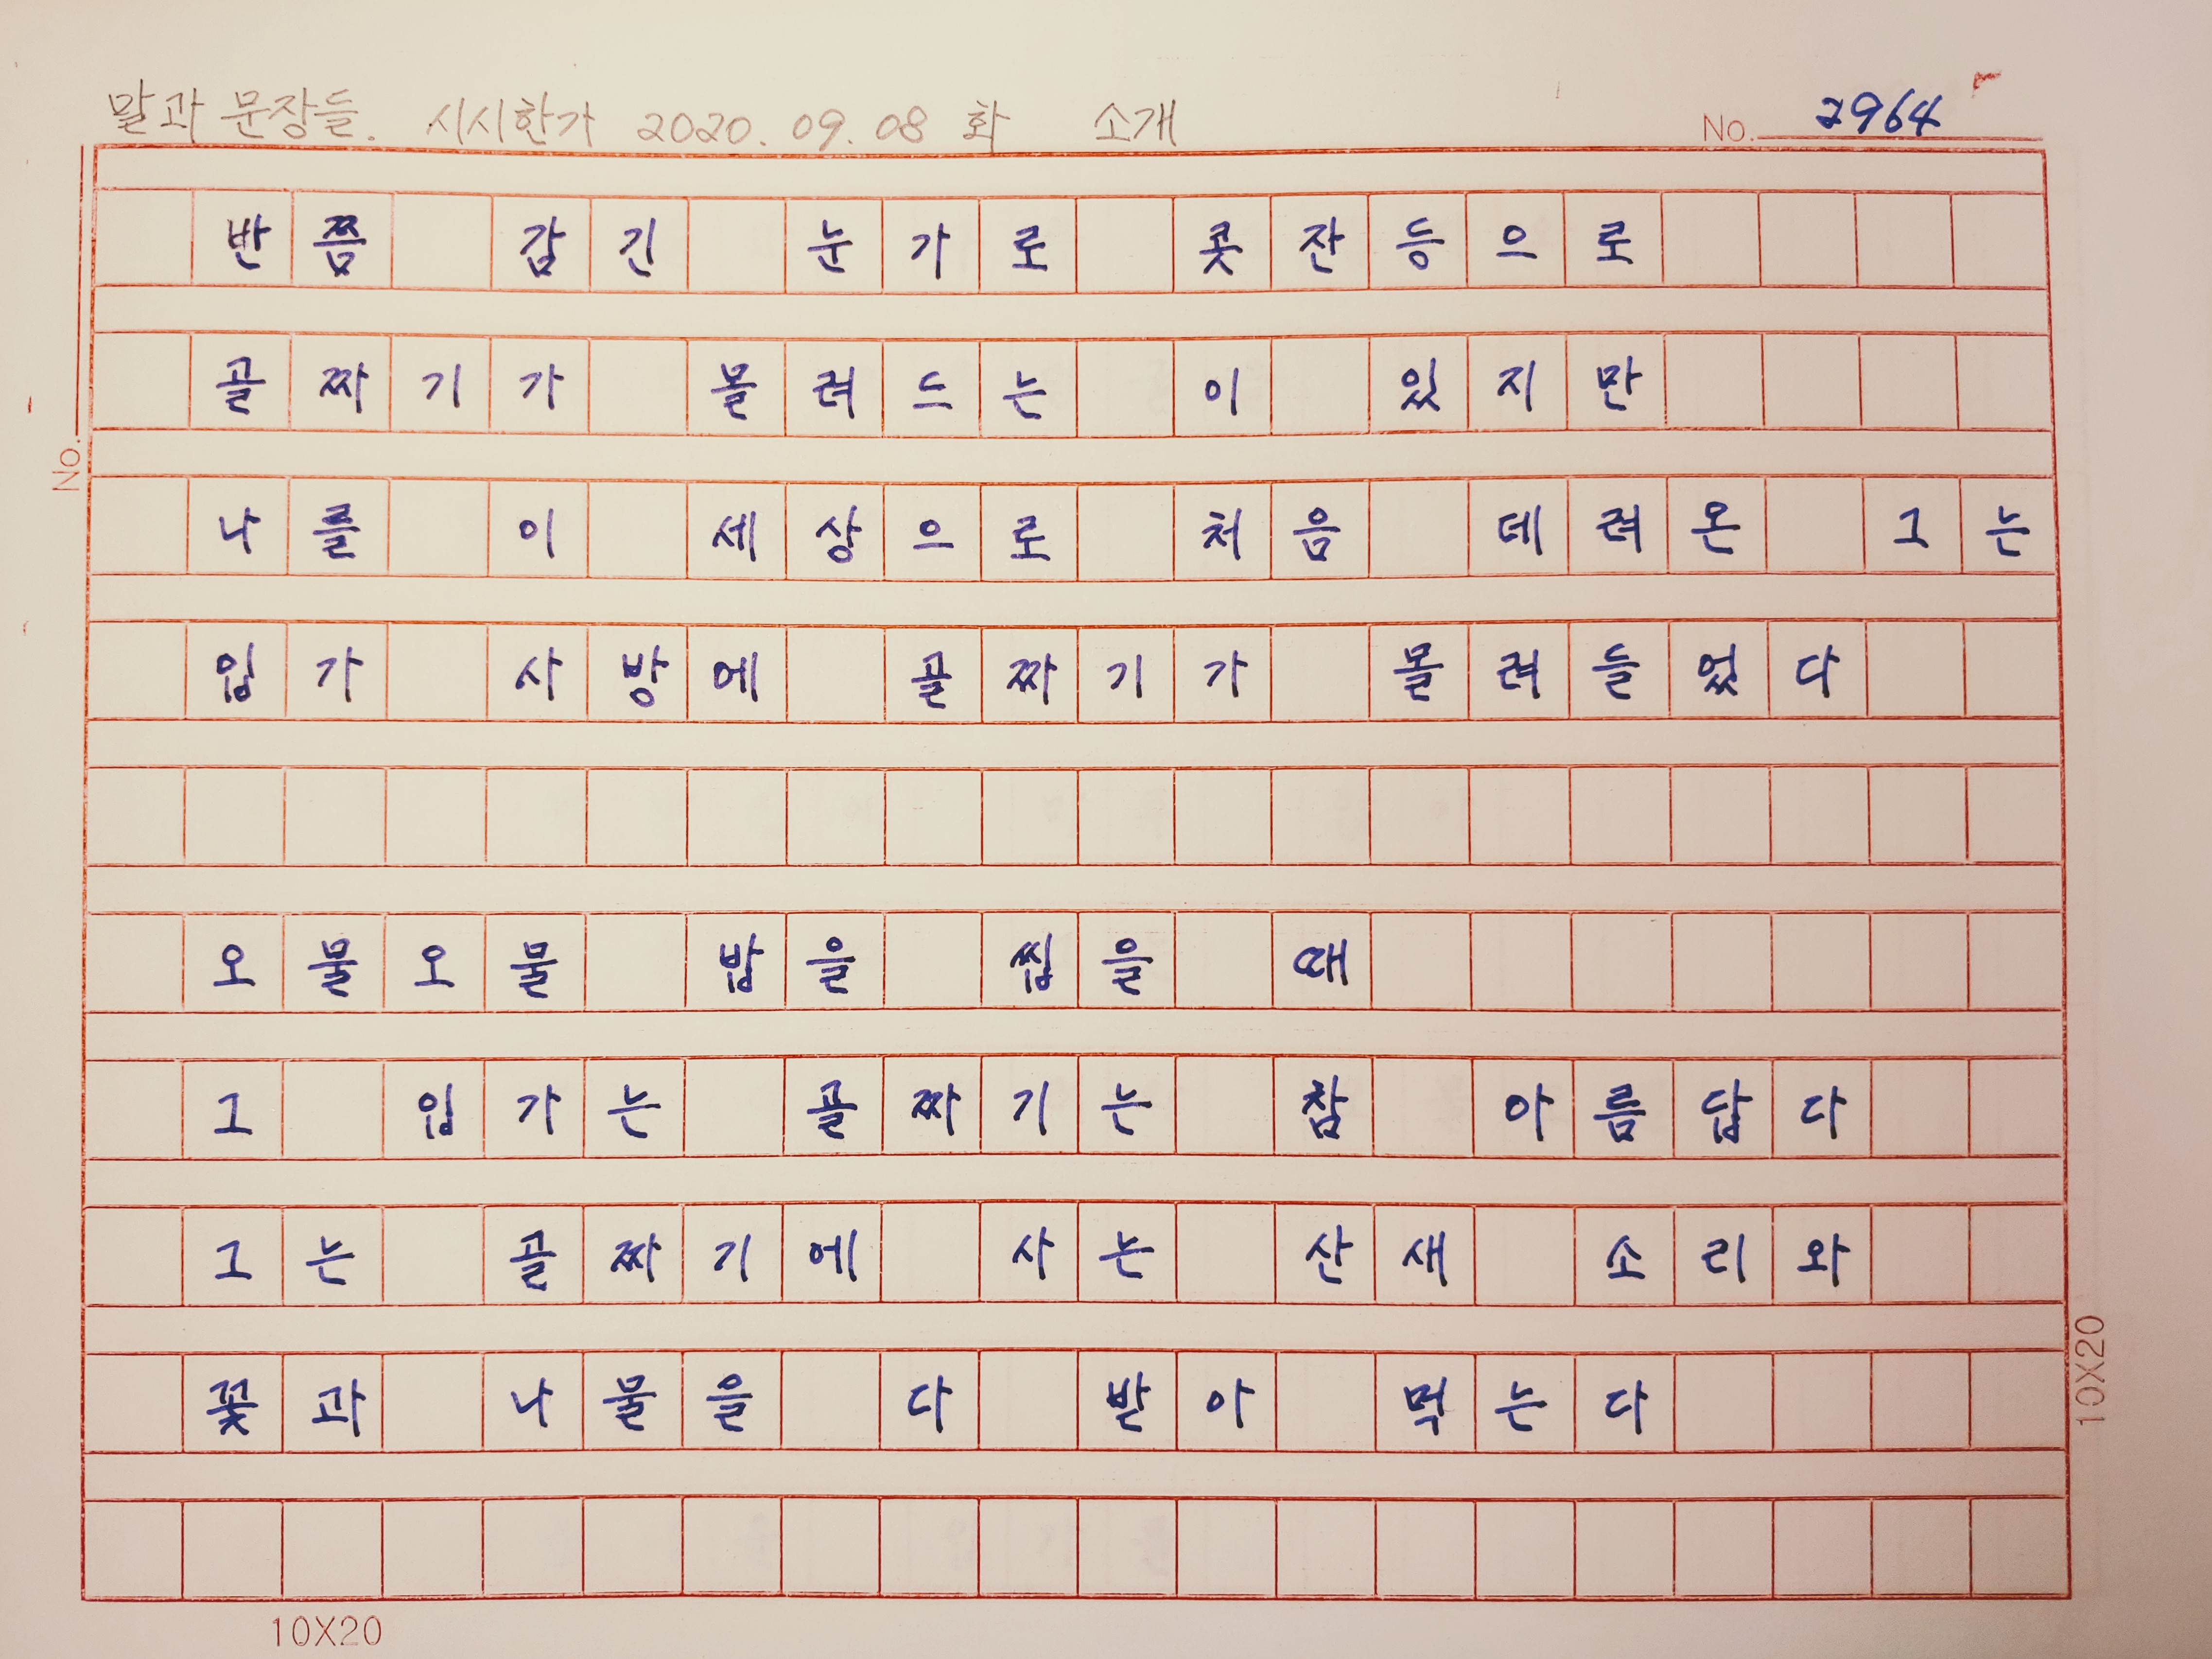 말과 문장들. 시시한가 2020. 09. 08 화 소개 No. 2964
반쯤 감긴 눈가로 콧잔등으로
골짜기가 몰려드는 이 있지만
나를 이 세상으로 처음 데려온 그는
입가 사방에 골짜기가 몰려들었다
오물오물 밥을 씹을 때
그 입가는 골짜기는 참 아름답다
그는 골짜기에 사는 산새 소리와
꽃과 나물을 다 받아 먹는다
No.
10X20
10X20